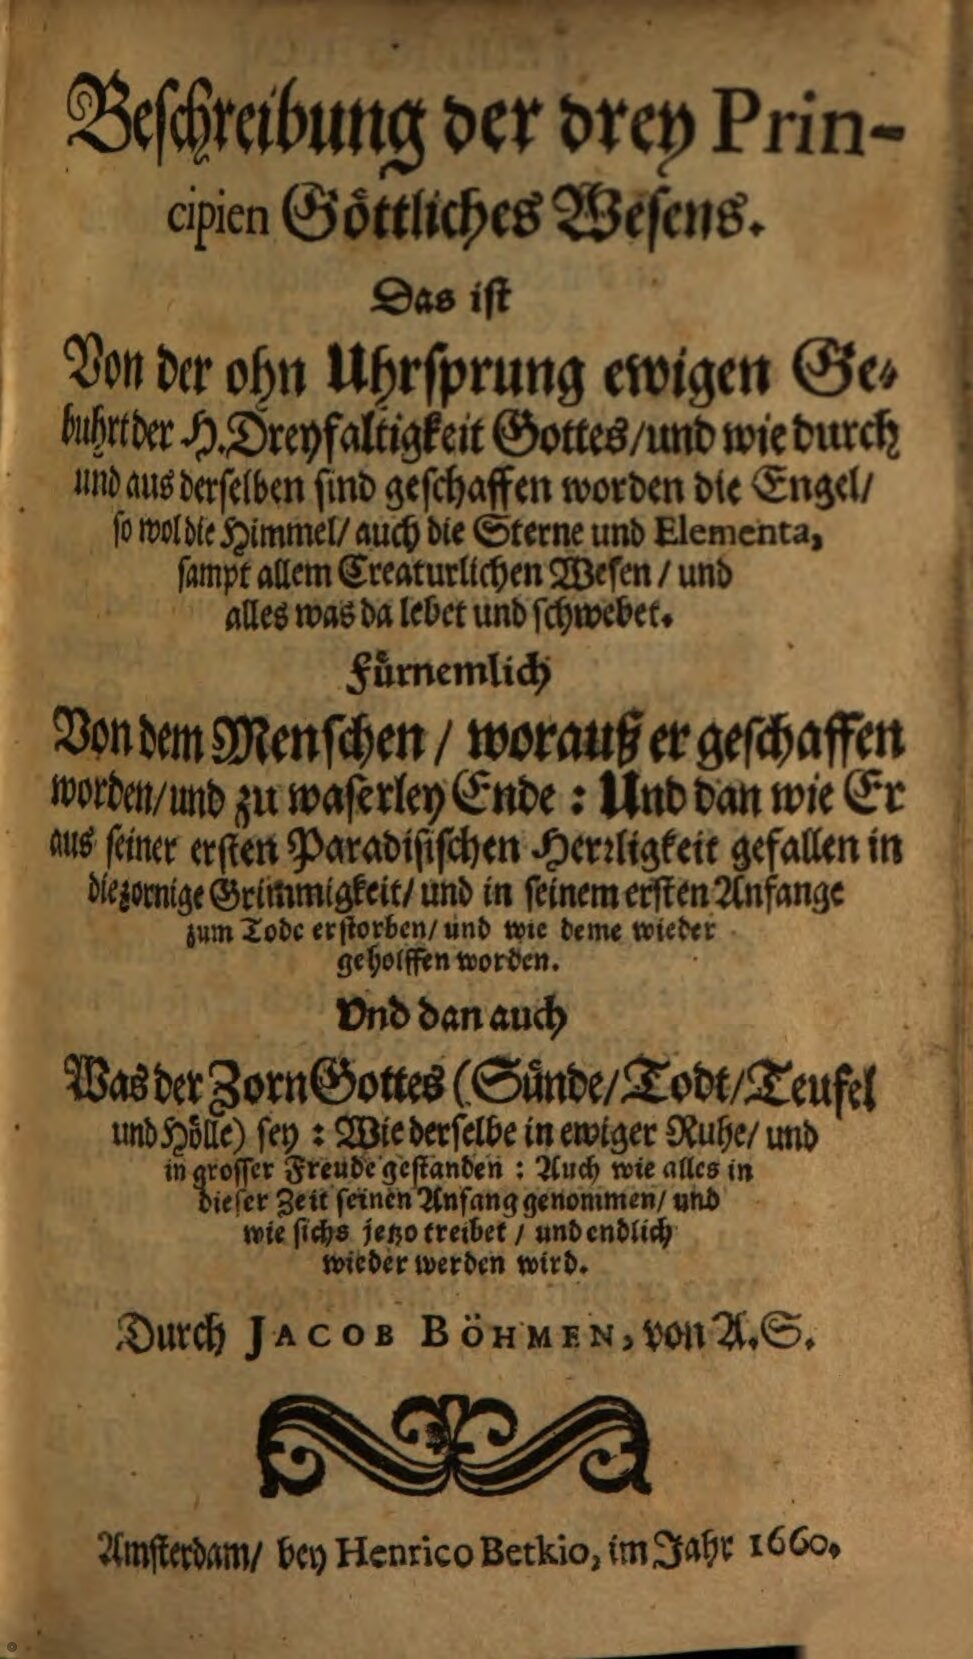 Beschreibung der drey Prin-
cipien Göttliches Wesens.
Das ist
Von der ohn Uhrsprung ewigen Ge-
buhrt der H. Dreyfaltigkeit Gottes/und wie durch
und aus derselben sind geschaffen worden die Engel/
so wol die Himmel/ auch die Sterne und Elementa,
sampt allem Creaturlichen Wesen / und
alles was da lebet und schwebet.
Fürnemlich
Von dem Menschen / worauß er geschaffen
worden/und zu waserley Ende : Und dan wie Er
aus seiner ersten Paradisischen Herrligkeit gefallen in
die zornige Grimmigkeit/ und in seinem ersten Anfange
zum Tode erstorben/ und wie deme wieder
geholffen worden.
Und dan auch
Was der Zorn Gottes (Sünde/Todt/Teufel
und Hölle) sey : Wie derselbe in ewiger Ruhe/ und
in grosser Freude gestanden : Auch wie alles in
dieser Zeit seinen Anfang genommen/ und
wie sichs jetzo treibet / und endlich
wieder werden wird.
Durch JACOB BÖHMEN, von A.S.
Amsterdam/ bey Henrico Betkio, im Jahr 1660.